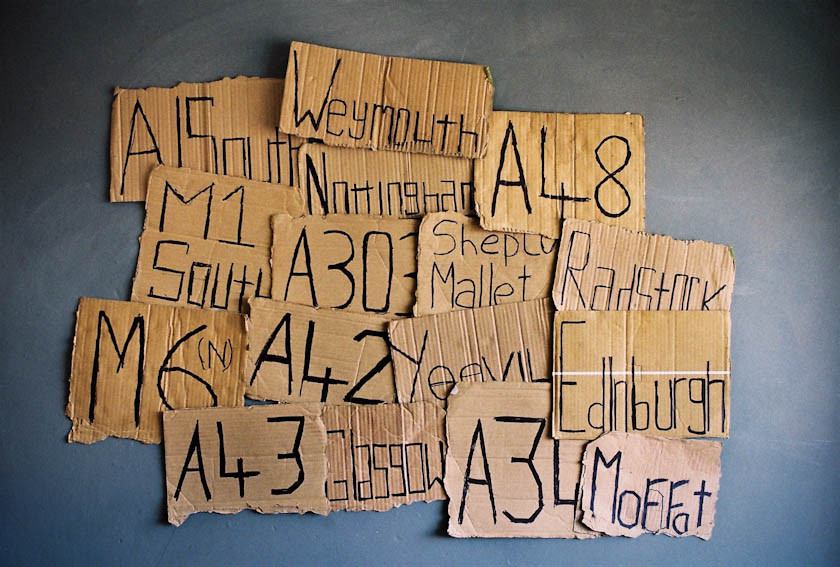 Weymouth
A1South
Nottingham
A48
M1
South
A303
Shepto
Mallet
Radstock
M6 (N)
A42
Yeovil
Edinburgh
A43
Glasgow
A34
MoFFat